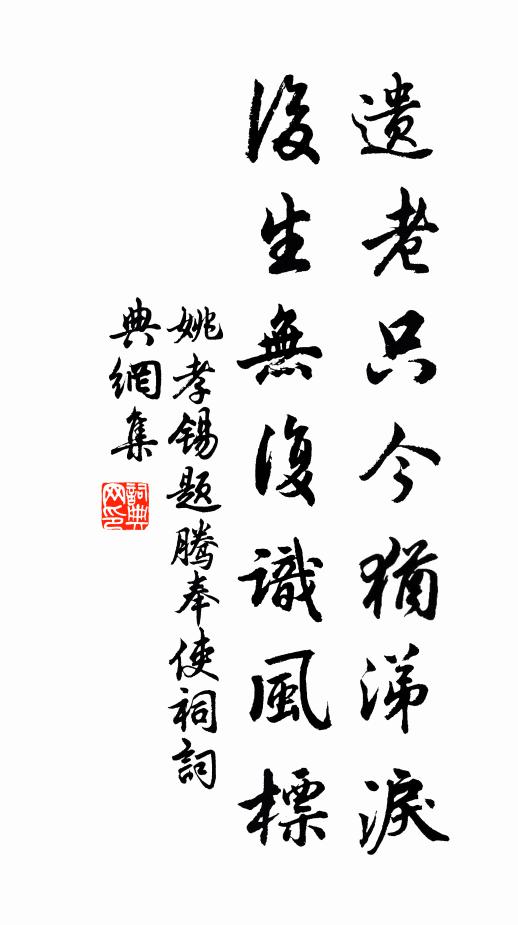 遺老只今猶涕淚
後生無復識風標
姚孝锡题騰奉使祠詞
典網集
詞典网印